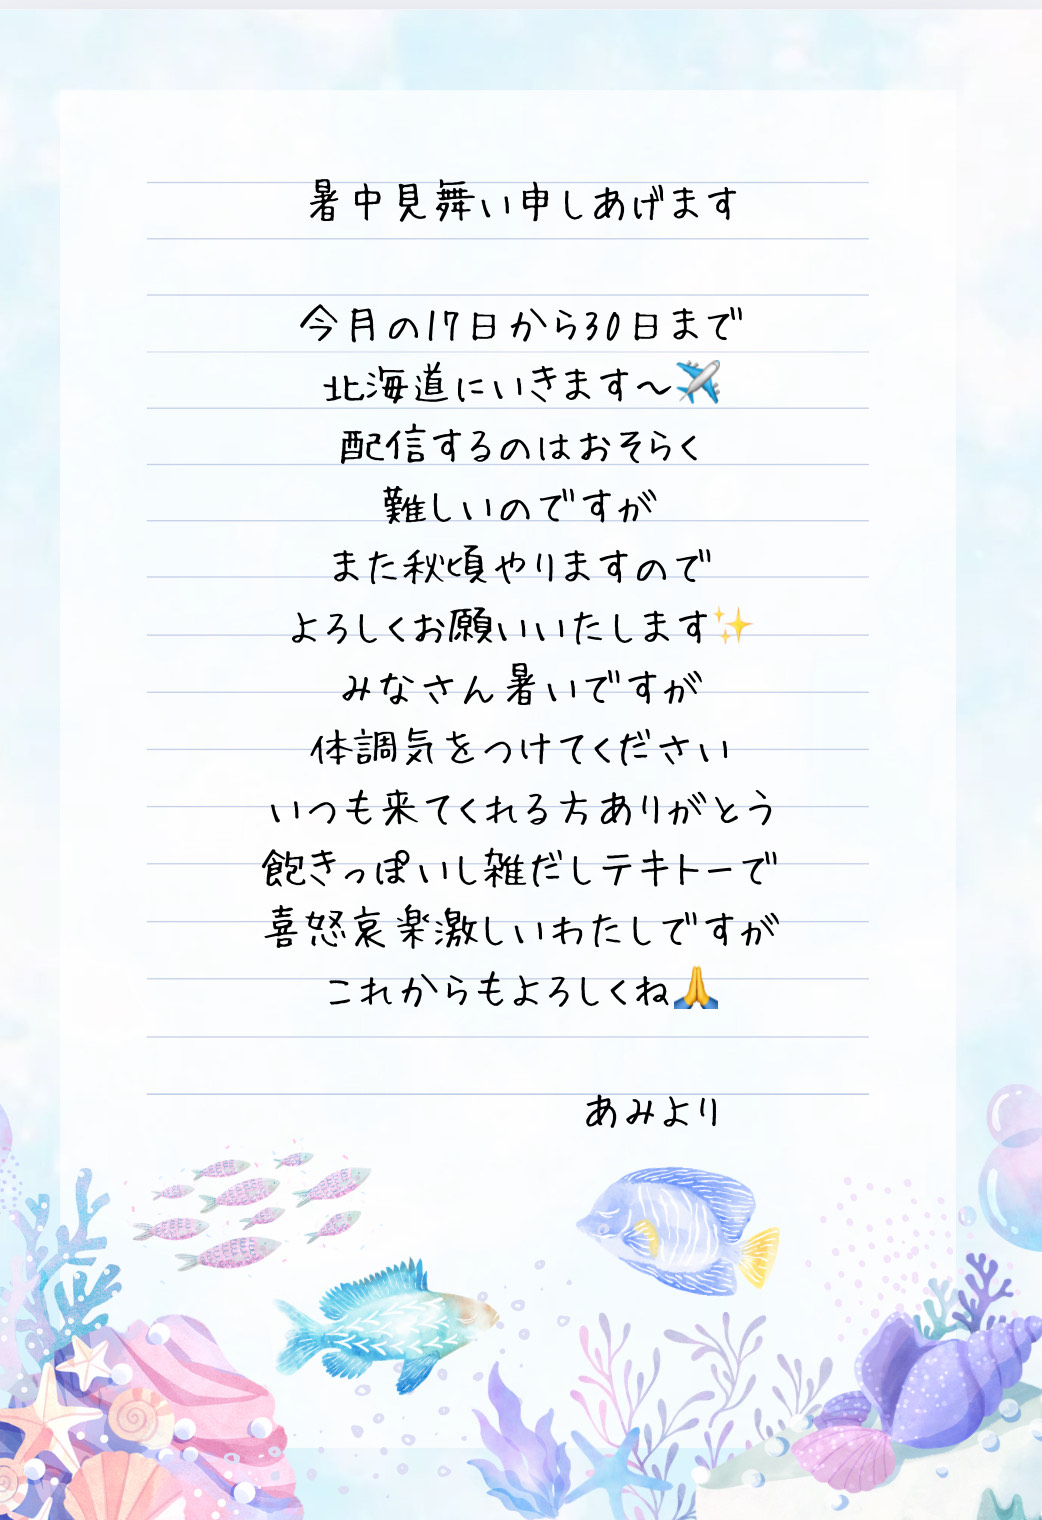 暑中見舞い申しあげます
今月の17日から30日まで
北海道にいきます〜✈️
配信するのはおそらく
難しいのですが
また秋頃やりますので
よろしくお願いいたします✨
みなさん暑いですが
体調気をつけてください
いつも来てくれる方ありがとう
飽きっぽいし雑だしテキトーで
喜怒哀楽激しいわたしですが
これからもよろしくね🙏
あみより